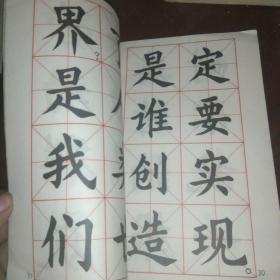 定要实现
是谁创造
界是我们
30
31